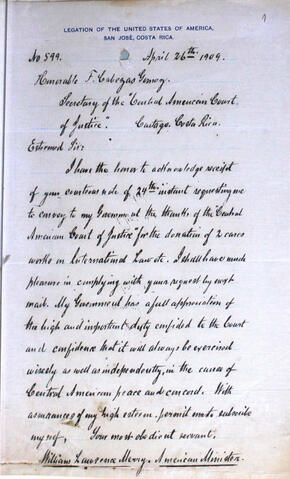 LEGATION OF THE UNITED STATES OF AMERICA,
SAN JOSÉ, COSTA RICA.
No 599. April 26th 1909.
Honorable F. Cabezas Gomez.
Secretary of the "Central American Court
of Justice". Cartago. Costa Rica.
Esteemed Sir:
I have the honor to acknowledge receipt
of your courteous note of 24th instant requesting me
to convey to my Government the thanks of the "Central
American Court of Justice" for the donation of 2 cases
works on International Law etc. I shall have much
pleasure in complying with your request by next
mail. My Government has a full appreciation of
the high and important duty confided to the Court
and confidence that it will always be exercised
wisely as well as independently, in the cause of
Central American peace and concord. With
assurances of my high esteem permit me to subscribe
myself, Your most obedient servant.
William Lawrence Merry. American Minister.